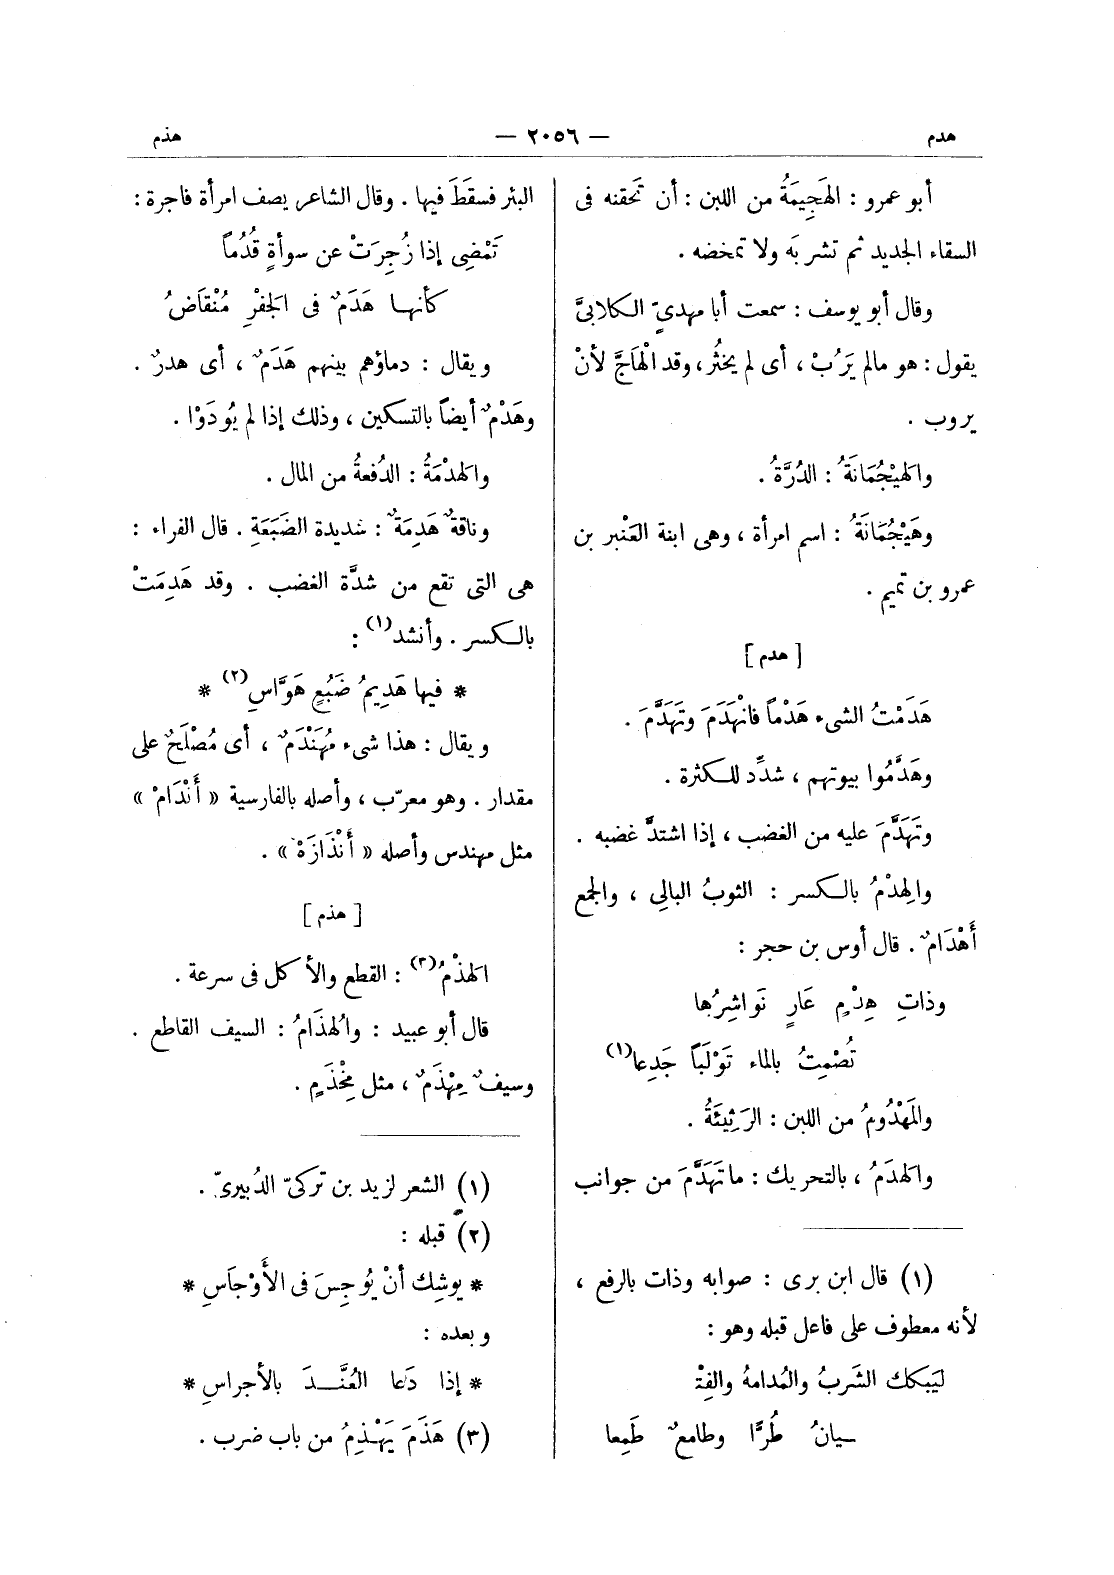 هدم — ٢٠٥٦ — هذم
أبو عمرو : الهَجِيمَةُ من اللبن : أن تَحقنه فى
السقاء الجديد ثم تشربَه ولا تمخضه .
وقال أبو يوسف : سمعت أبا مهدىٍّ الكلابىَّ
يقول : هو مالم يَرُبْ ، أى لم يخثُر ، وقد الْهَاجَّ لأنْ
يروب .
والهَيْجُمَانَةُ : الدُرَّةُ .
وهَيْجُمَانَةُ : اسم امرأة ، وهى ابنة العَنْبر بن
عمرو بن تميم .
[ هدم ]
هَدَمْتُ الشىء هَدْماً فانْهَدَمَ وتَهَدَّمَ .
وهَدَّمُوا بيوتهم ، شدِّد للكثرة .
وتَهَدَّمَ عليه من الغضب ، إذا اشتدَّ غضبه .
والهِدْمُ بالكسر : الثوبُ البالِى ، والجمع
أَهْدَامٌ . قال أوس بن حجر :
وذاتِ هِدْمٍ عَارٍ نَوَاشِرُها
تُصْمِتُ بالماء تَوْلَباً جَدِعا(١)
والمَهْدُومُ من اللبن : الرَثِيئَةُ .
والهَدَمُ ، بالتحريك : ما تَهَدَّمَ من جوانب
(١) قال ابن برى : صوابه وذات بالرفع ،
لأنه معطوف على فاعل قبله وهو :
لِيَبكك الشَربُ والمُدامةُ والفِتْـ
ـيانُ طُرًّا وطامعٌ طَمِعا
البئر فسقَطَ فيها . وقال الشاعر يصف امرأة فاجرة :
تَمْضِى إذا زُجِرَتْ عن سوأةٍ قُدُماً
كأنها هَدَمٌ فى الجَفْرِ مُنْقَاضُ
ويقال : دماؤهم بينهم هَدَمٌ ، أى هدرٌ .
وهَدْمٌ أيضاً بالتسكين ، وذلك إذا لم يُودَوْا .
والهِدْمَةُ : الدُفعةُ من المال .
وناقةٌ هَدِمَةٌ : شديدة الضَبَعَةِ . قال الفراء :
هى التى تقع من شدَّة الغضب . وقد هَدِمَتْ
بالكسر . وأنشد(١) :
* فيها هَدِيمُ ضَبُعٍ هَوَّاسِ(٢) *
ويقال : هذا شىء مُهَنْدَمٌ ، أى مُصْلَحٌ على
مقدار . وهو معرّب ، وأصله بالفارسية « أَنْدَامْ »
مثل مهندس وأصله « أَنْذَازَهْ » .
[ هذم ]
الهَذْمُ(٣) : القطع والأكل فى سرعة .
قال أبو عبيد : والهُذَامُ : السيف القاطع .
وسيفٌ مِهْذَمٌ ، مثل مِخْذَمٍ .
(١) الشعر لزيد بن تركىّ الدُبيرىّ .
(٢) قبله :
* يوشِك أنْ يُوجِسَ فى الأَوْجَاسِ *
وبعده :
* إذا دَعا العُنَّدَ بالأجراسِ *
(٣) هَذَمَ يَهْذِمُ من باب ضرب .